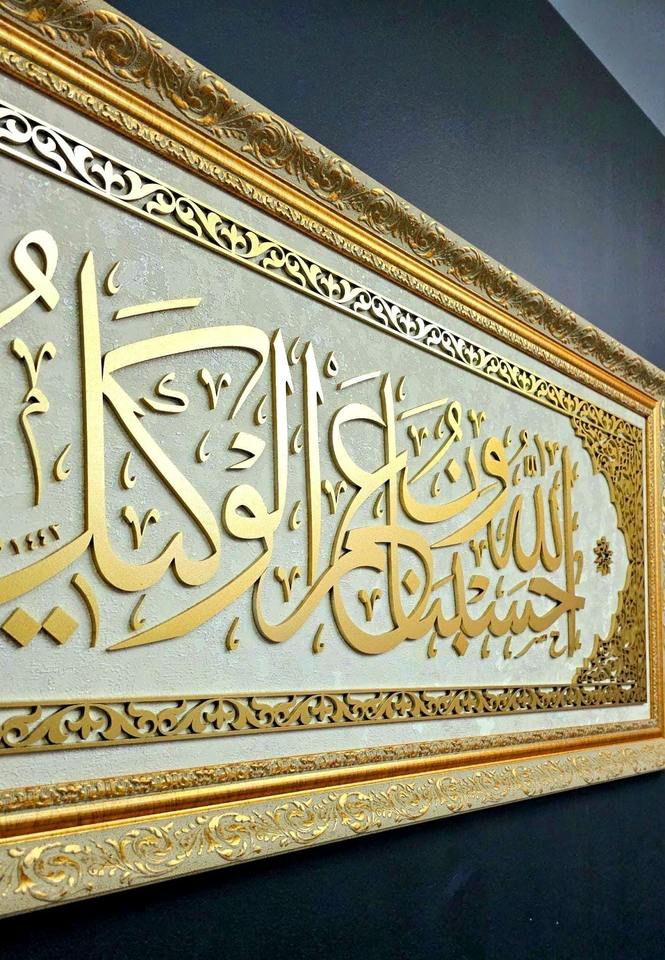 حَسْبُنَا اللّٰهُ وَنِعْمَ الْوَكِيلُ
١٤٤٢